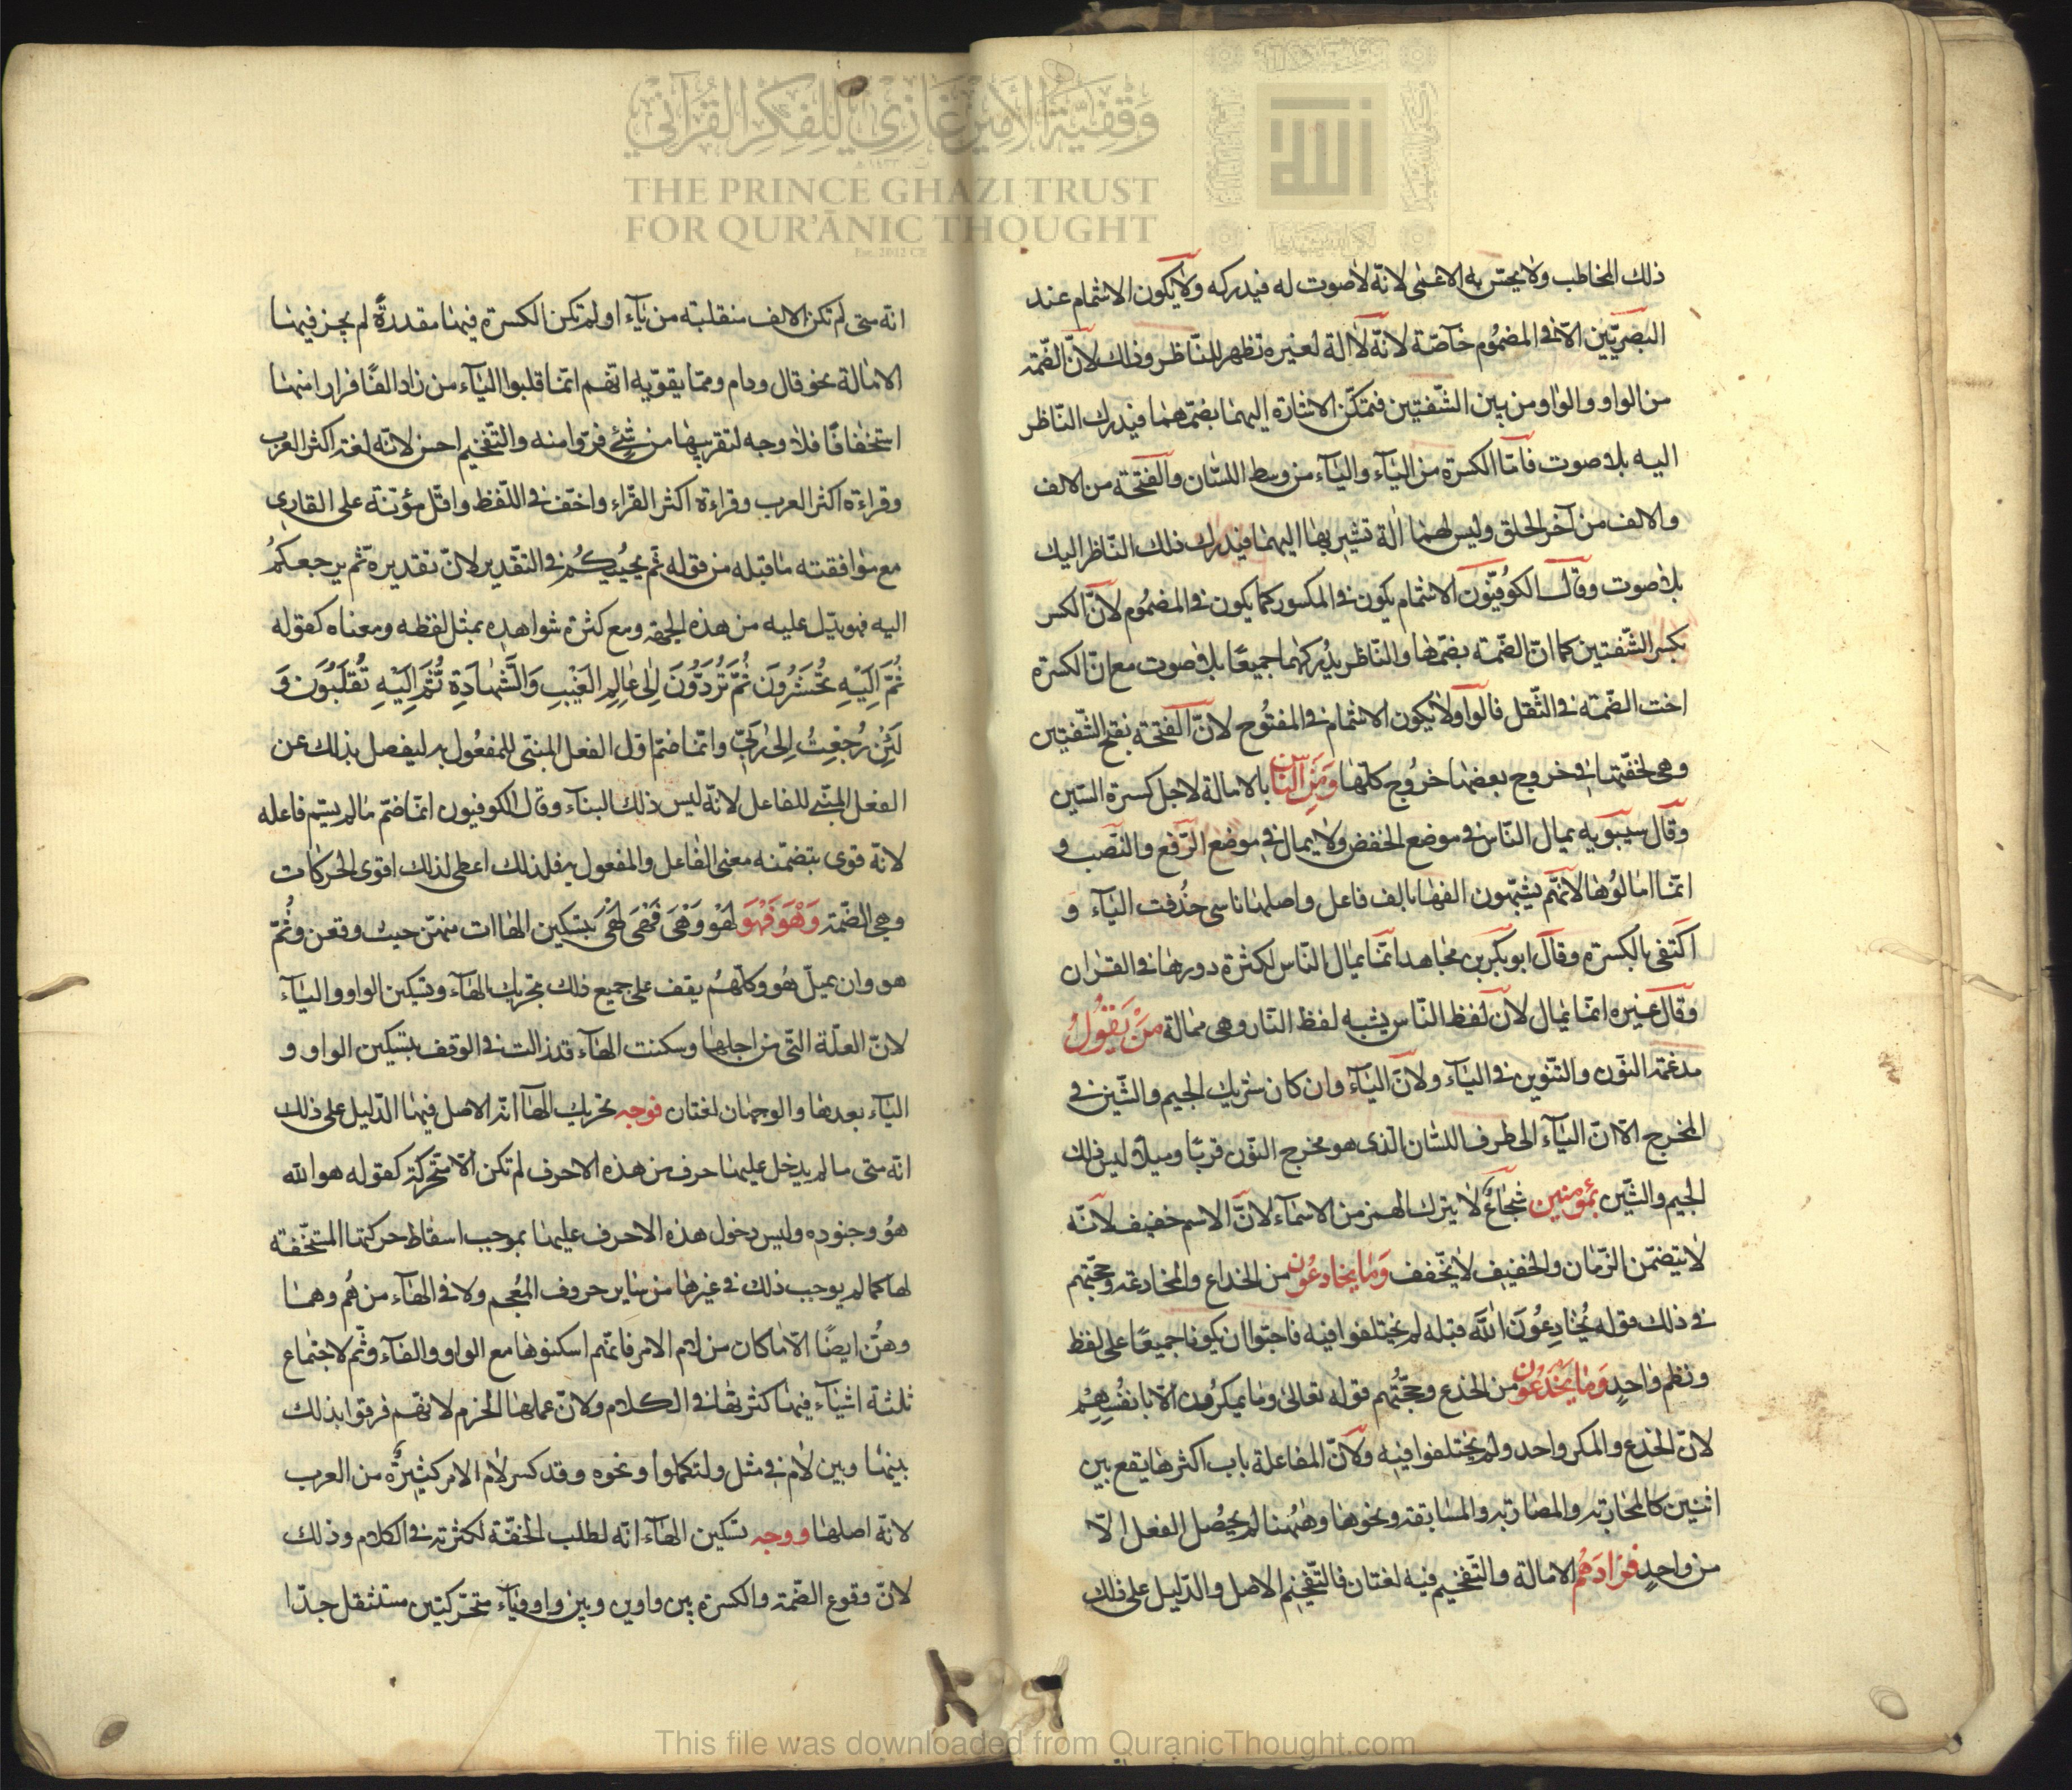 وقفية الأمير غازي للفكر القرآني
THE PRINCE GHAZI TRUST
FOR QUR'ĀNIC THOUGHT
Est. 2012 CE
ذلك المخاطب ولا يحسّ به الاعمٰى لانّه لا صوت له فيدركه ولا يكون الاشمام عند
البصريّين الّا فى المضمُوم خآصّة لانّه لا الة لغيره تظهر للنّاظر وذلك لانّ الضّمّة
من الواو والواو من بين الشّفتين فتمكّن الاشارة اليهما بضمّهما فيدرك النّاظر
اليه بلا صوت فامّا الكسرة من اليٰآء واليٰآء من وسط اللسٰان والفتحة من الالف
والالف من آخر الحلق وليس لهما اٰلة تشير بها اليهما فيدرك ذلك النّاظر اليك
بلا صوت وقال الكوُفيّون الاشمام يكون فى المكسور كما يكون فى المضمُوم لانّ الكسر
بكسر الشّفتين كما انّ الضّمة بضمّها والنّاظر يدُركهما جميعًا بلا صوت مع انّ الكسرة
اخت الضّمة فى الثّقل قالوا ولا يكون الاشمام فى المفتُوح لانّ الفتحة بفتح الشّفتين
وهى لخفّتهٰا فى خروج بعضهٰا خروُج كلّهٰا وَمِنَ النّٰاسِ بالامالة لاجل كسرة السّين
وقال سيبويه يمال النّاس فى موضع الخفض ولا يمال فى موضع الرّفع والنّصب و
انّمٰا امٰالوُها لانّهم يشبّهون الفهٰا بالف فاعل واصلهٰا ناسى حذُفت اليٰآء و
اكتفى بالكسرة وقال ابوبكر بن مجٰاهد انّمٰا يمٰال النّاس لكثرة دورهٰا فى القرٰان
وقال غيره انّمٰا يمٰال لانّ لفظ النّاس يشبه لفظ النّار وهى ممٰالة مَنْ يَقوُلُ
مدغمة النّون والتّنوين فى اليٰآء ولانّ اليٰآء وان كان شريك الجيم والشّين فى
المخرج الّا انّ اليٰآء الى طرف اللسٰان الّذى هو مخرج النّون قربًا وميلًا ليس ذلك
الجيم والشّين بمُؤمنين شجٰاعٌ لا يترك الهمز من الاسمٰآء لانّ الاسم خفيف لانّه
لا يتضمّن الزّمٰان والخفيف لا يخّفف وَمٰا يخٰادعُون من الخداع والمخٰادعة وحجّتهم
فى ذلك قوله يُخٰادِعُونَ اللّٰهَ قبله لم يختلفوا فيه فاحبّوا ان يكونا جميعًا على لفظ
ونظم واحدٍ وَمٰا يَخْدَعُون من الخدع وحجّتُهم قوله تعالى وما يمكرُون الّا بانفُسِهِمْ
لانّ الخدع والمكر واحد ولم يختلفوا فيه ولانّ المفاعلة باب اكثرهٰا يقع بين
اثنين كالمحٰاربة والمضٰاربة والمسٰابقة ونحوهٰا وهٰهُنا لم يحصُل الفعل الّا
من واحدٍ فَزادَهُم الامالة والتّفخيم فيه لغتان فالتّفخيم الاصل والدّليل على ذلك
انّه متى لم تكن الالف منقلبة من يٰآء او لم تكن الكسرة فيهٰا مقدرةً لم يجز فيهٰا
الامٰالة نحو قال ودام وممّا يقوّيه انّهم انّمٰا قلبوا اليٰآء من زاد الفًا فرارا منهٰا
استخفٰافًا فلا وجه لتقريبهٰا من شئٍ فرّوا منه والتّفخيم احسن لانّه لغة اكثر العرب
وقراءة اكثر العرب وقراءة اكثر القرّاء واخفّ فى اللّفظ واقلّ مؤنة على القارى
مع موٰافقته مٰا قبله من قوله ثم يحيُيكُم فى التقدير لانّ تقديره ثم يرجعكمُ
اليه فهو يدّل عليه من هذه الجهة ومع كثرة شواهده بمثل لفظه ومعناه كقوله
ثُمَّ اِلَيْهِ تُحْشَرُونَ ثُمَّ تُرَدُّونَ اِلٰى عٰالِمِ الغَيْبِ وَالشَّهٰادَةِ ثُمَّ اِلَيْهِ تُقْلَبُونَ وَ
لَئِنْ رُجِعْتُ اِلٰى رَبّى وانّمٰا ضمّ اوّل الفعل المبنىّ للمفعُول به ليفصل بذلك عن
الفعل المبنّى للفاعل لانّه ليس ذلك البناء وقال الكوفيون انّمٰا ضمّ مٰالم يسّم فاعله
لانّه قوى بتضمّنه معنى الفاعل والمفعول به فلذلك اعطى لذلك اقوى الحركات
وهى الضّمّة وَهْوَ فَهْوَ لَهْوَ وَهْىَ فَهْىَ لَهْىَ بتسكين الهٰاات منهنّ حيث وقعن وثُمّ
هو وان يملّ هُو وكلّهُم يقف على جميع ذلك بتحريك الهٰآء وتسكين الواو واليٰآء
لانّ العلّة التّى من اجلهٰا وسكنت الهٰآء قد زالت فى الوقف بتسكين الواو و
اليٰآء بعدهٰا والوجهٰان لغتان فوجه تحريك الهٰآ انّه الاصل فيهٰا الدّليل على ذلك
انّه متى مالم يدخل عليهٰا حرف من هذه الاحرف لم تكن الّا متحّركة كقوله هو اللّه
هوُ وجنوده وليس دخول هذه الاحرف عليهٰا بموجب اسقٰاط حركتهٰا المستحّقة
لها كما لم يوجب ذلك فى غيرهٰا من سٰاير حروف المُعجم ولا فى الهٰآء من هُم وهمٰا
وهُنّ ايضًا الّا مٰا كان من لام الامر فانّهم اسكنوهٰا مع الواو والفٰآء وثّم لاجتمٰاع
ثلثة اشيٰآء فيهٰا كثرتهٰا فى الكلام ولانّ عملهٰا الجزم لانّهم فرقوا بذلك
بينهٰا وبين لاٰم فى مثل ولتكملوا ونحوه وقد كسر لاٰم الامر كثيرٌ من العرب
لانّه اصلهٰا ووجه تسكين الهٰآء انّه لطلب الخفّة لكثرته فى الكلام وذلك
لانّ وقوع الضّمة والكسرة بين واوين وبين واو ويٰآء متحرّكتين مستثقل جدّا
This file was downloaded from QuranicThought.com